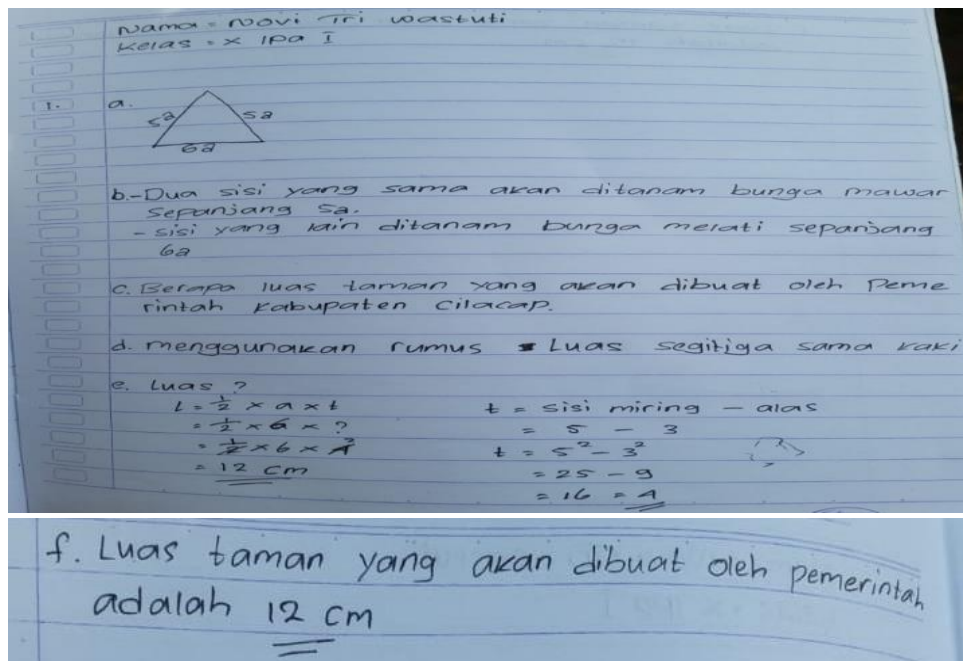 Nama = Novi Tri wastuti
Kelas = X IPA I
1. a.
5a 5a
6a
b.-Dua sisi yang sama akan ditanam bunga mawar
sepanjang 5a.
- sisi yang lain ditanam bunga melati sepanjang
6a
c. Berapa luas taman yang akan dibuat oleh Peme
rintah Kabupaten Cilacap.
d. menggunakan rumus Luas segitiga sama kaki
e. Luas ?
L = 1/2 x a x t
= 1/2 x 6 x ?
= 1/2 x 6 x 4 2
= 12 cm
t = sisi miring - alas
= 5 - 3
t = 5² - 3²
= 25 - 9
= 16 = 4
f. Luas taman yang akan dibuat oleh pemerintah
adalah 12 cm